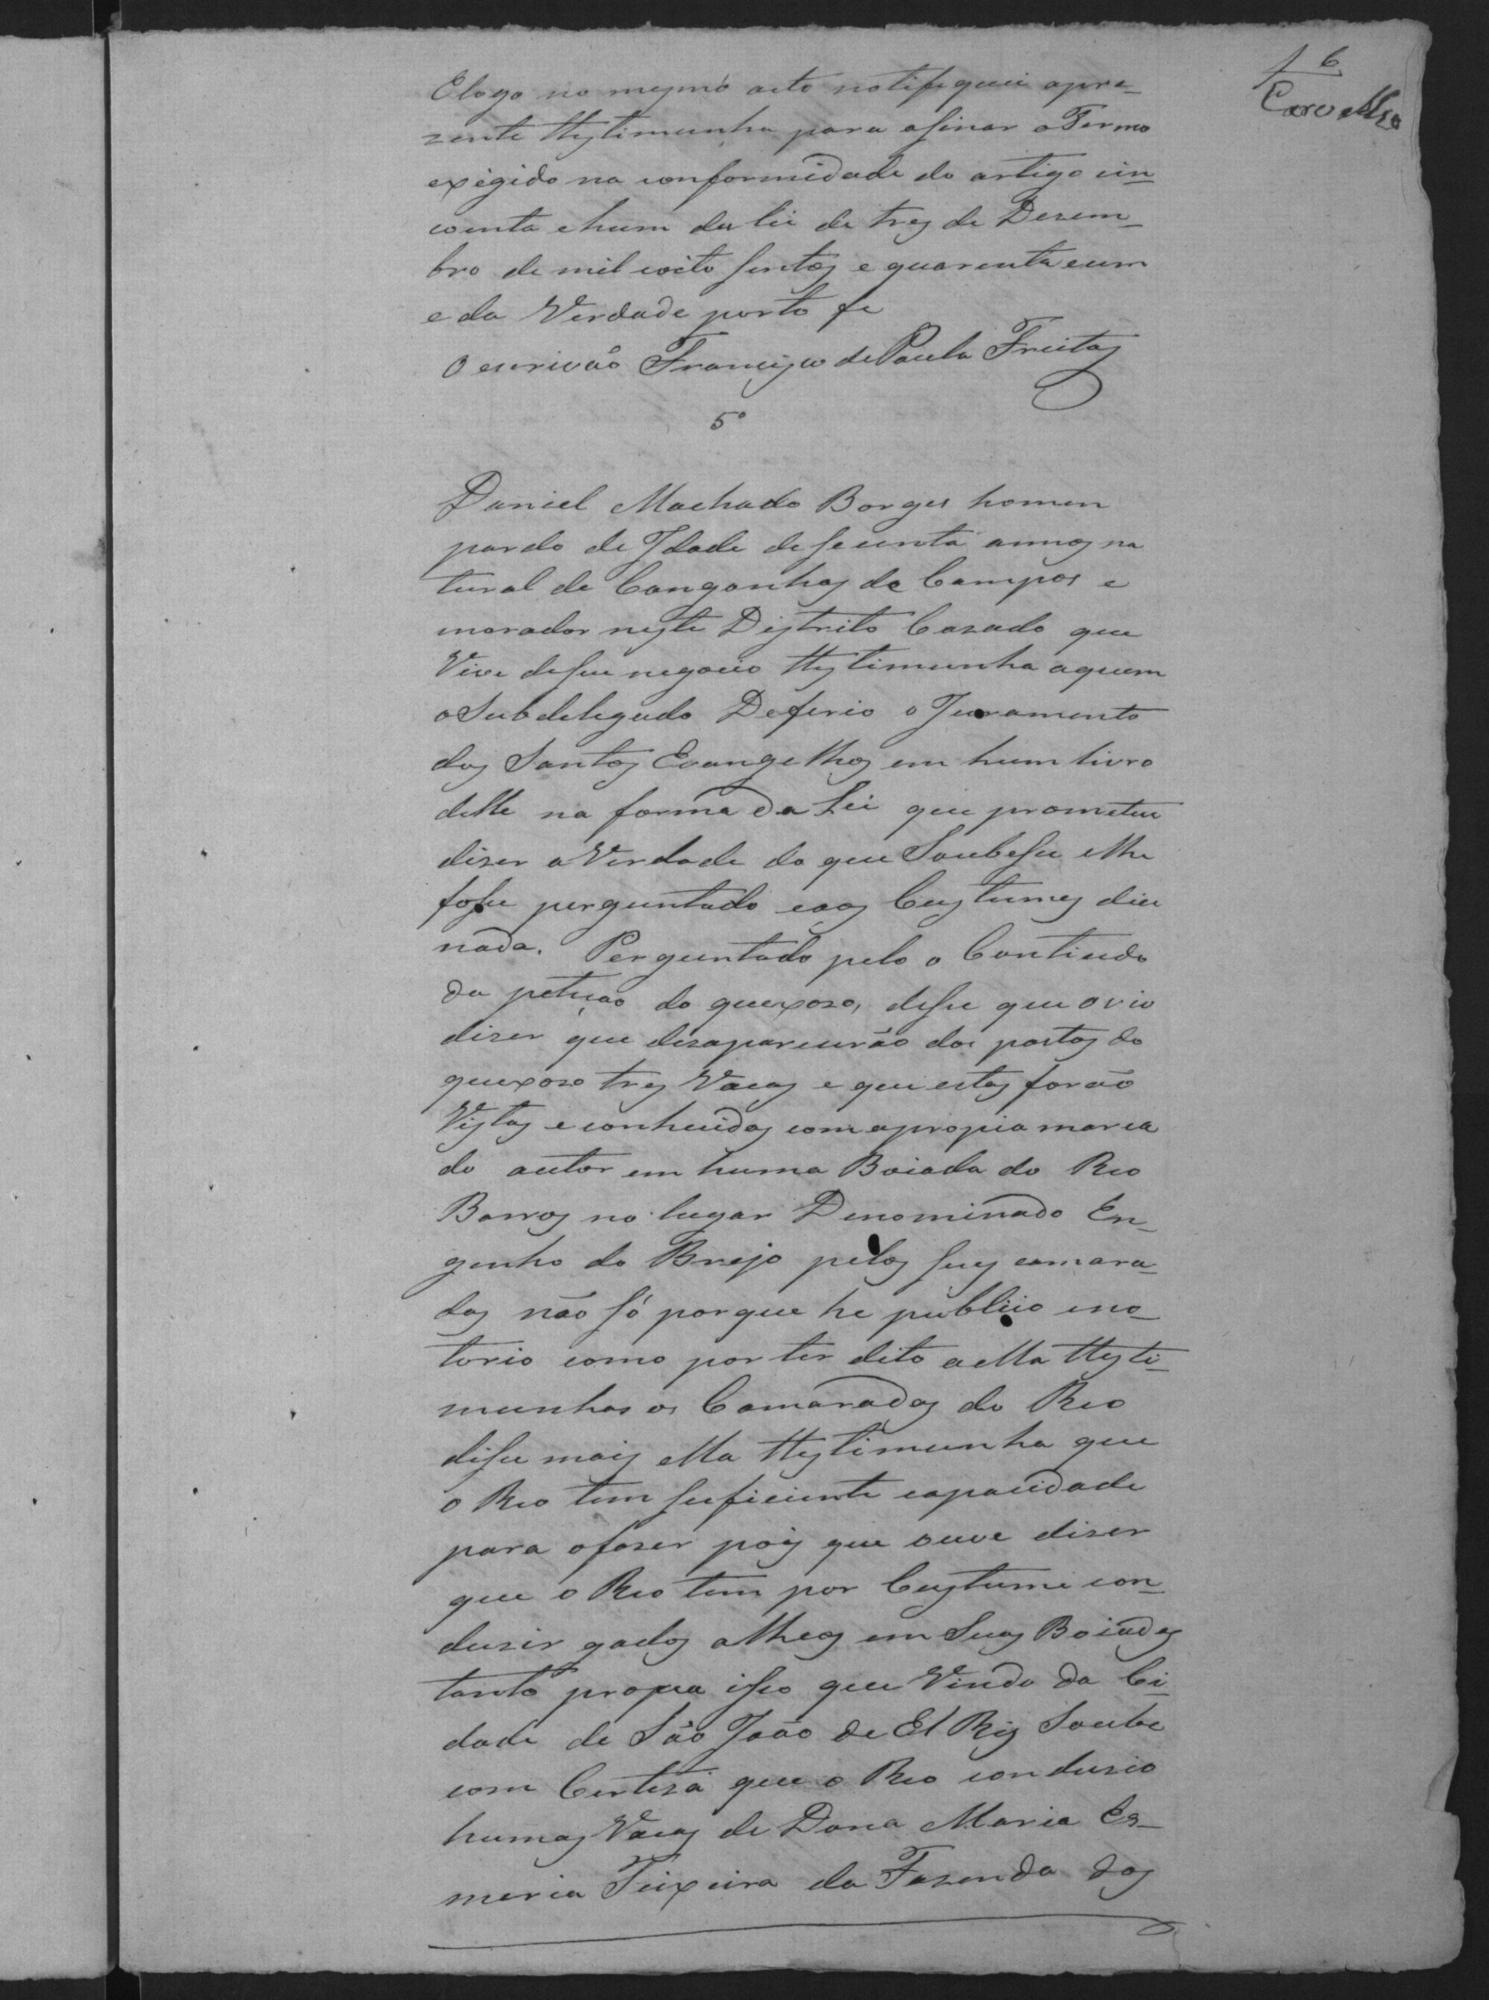 6
Carvalho
Elogo no mesmo acto notifiquei apre-
zente thestimunha para asinar o Termo
exegido na conformidade do artigo cin-
coenta e hum da lei de tres de Desem-
bro de mil coito sentos e quarenta eum
e da Verdade porto fe
O escrivão Francisco de Paula Freitas
5º
Daniel Machado Borges homen
pardo de Idade de secenta annos na
tural de Congonhas do Campos e
morador neste Distrito Casado que
Vive desue negocio thestimunha aquem
o Subdelegado Deferio o Juramento
dos Santos Evangelhos em hum livro
delle na forma da Lei que prometeu
diser a Verdade do que Soubesse elhe
fosse perguntado eaos Custumes dice
nada. Perguntado pelo o Contiudo
da petição do quexoso, disse que ovio
diser que desaparecerão dos pastos do
quexoso tres Vacas e que estas forão
Vistas e conhecidas com apropia marca
do autor em huma Boiada do Reo
Barros no lugar Denominado En-
genho do Brejo pelos seus camara-
das não só porque he publico eno-
torio como por ter dito aella thesti-
munhas os Camaradas do Reo
disse mais ella thestimunha que
o Reo tem suficiente capacidade
para ofaser pois que ouve diser
que o Reo tem por Custume con-
dusir gados alheos em Suas Boiadas
tanto propea isso que Vindo da Ci-
dade de São João de El Reis Soube
com Certesa que o Reo condusio
humas Vacas de Dona Maria Es-
meria Teixeira da Fasenda dos